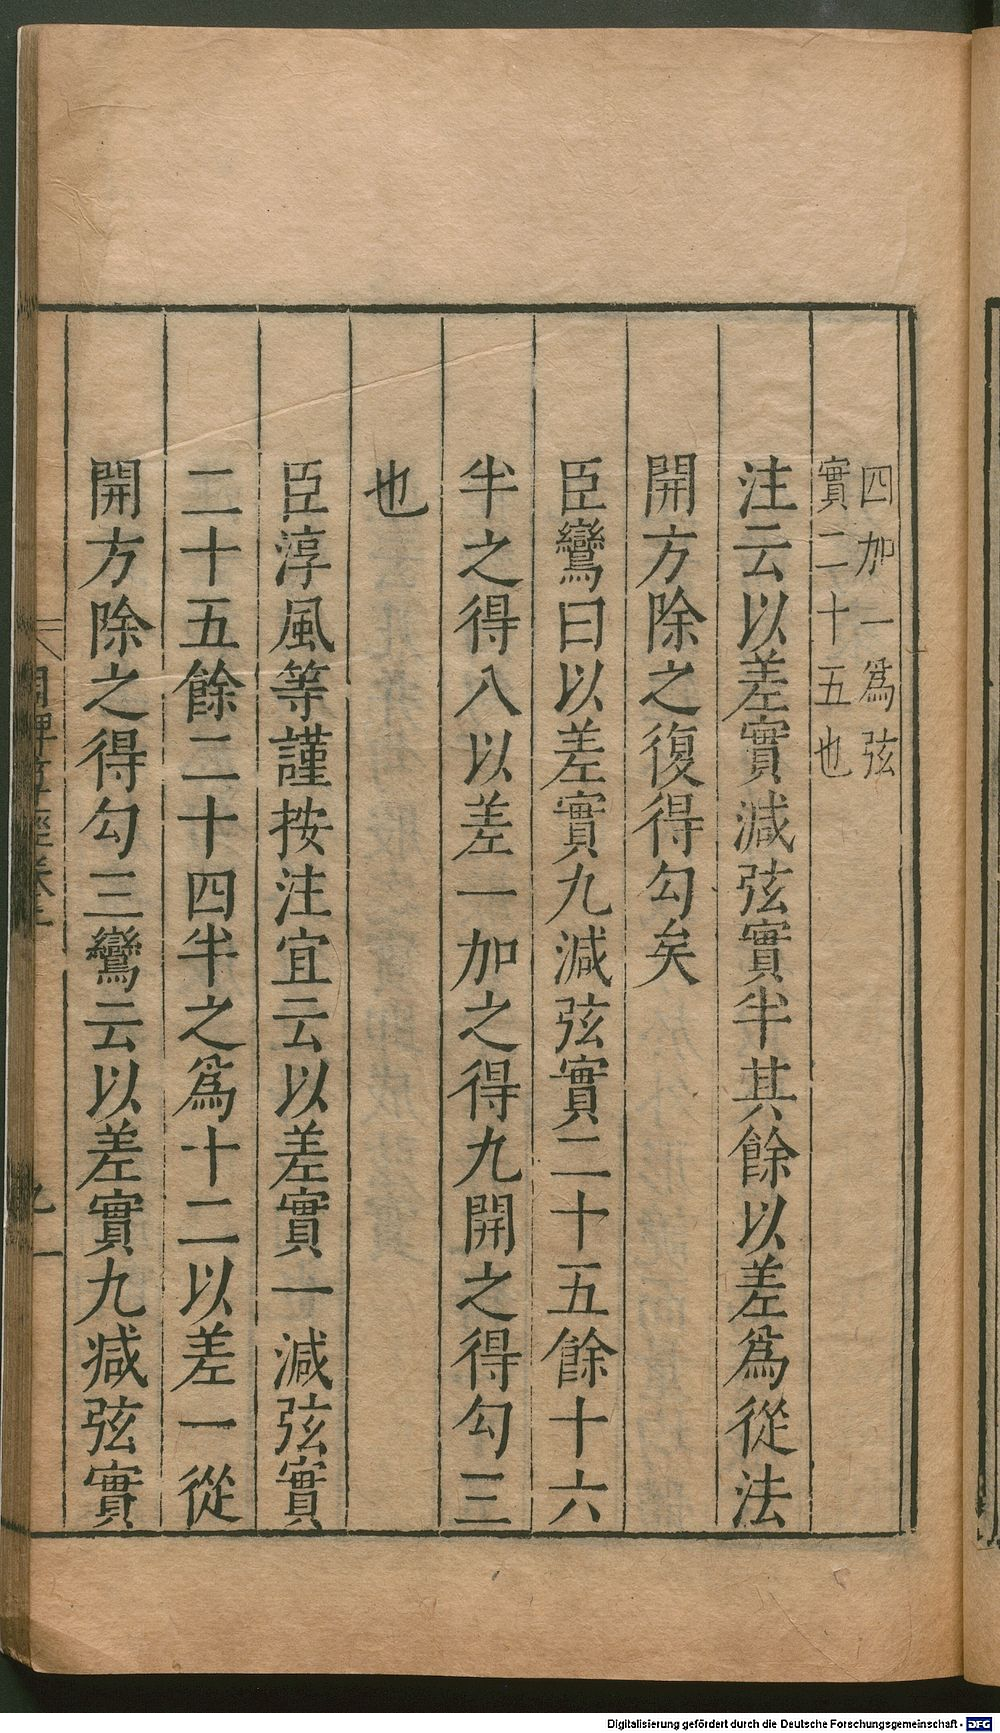 四加一爲弦
實二十五也
注云以差實減弦實半其餘以差爲從法
開方除之復得勾矣
臣鸞曰以差實九減弦實二十五餘十六
半之得八以差一加之得九開之得勾三
也
臣淳風等謹按注宜云以差實一減弦實
二十五餘二十四半之爲十二以差一從
開方除之得勾三鸞云以差實九減弦實
Digitalisierung gefördert durch die Deutsche Forschungsgemeinschaft - DFG